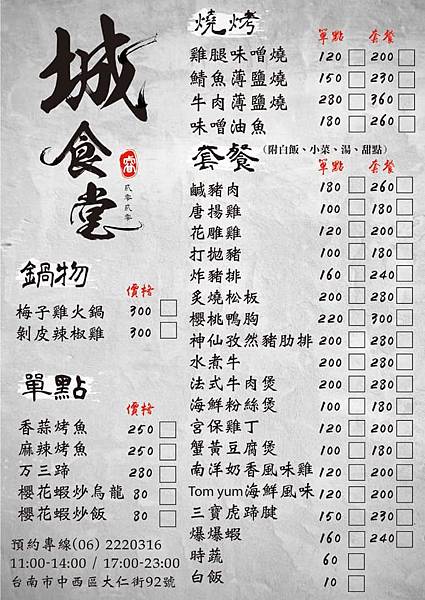 城食堂
宿
貳零貳零
鍋物
價格
梅子雞火鍋 300
剝皮辣椒雞 300
單點
價格
香蒜烤魚 250
麻辣烤魚 250
万三蹄 280
櫻花蝦炒烏龍 80
櫻花蝦炒飯 80
預約專線(06) 2220316
11:00-14:00 / 17:00-23:00
台南市中西區大仁街92號
燒烤
單點 套餐
雞腿味噌燒 120 200
鯖魚薄鹽燒 150 230
牛肉薄鹽燒 280 360
味噌油魚 180 260
套餐(附白飯、小菜、湯、甜點)
單點 套餐
鹹豬肉 180 260
唐揚雞 100 180
花雕雞 120 200
打拋豬 100 180
炸豬排 160 240
炙燒松板 200 280
櫻桃鴨胸 220 300
神仙孜然豬肋排 200 280
水煮牛 200 280
法式牛肉煲 200 280
海鮮粉絲煲 100 180
宮保雞丁 120 200
蟹黃豆腐煲 100 180
南洋奶香風味雞 120 200
Tom yum海鮮風味 120 200
三寶虎蹄腱 150 230
爆爆蝦 160 240
時蔬 60
白飯 10